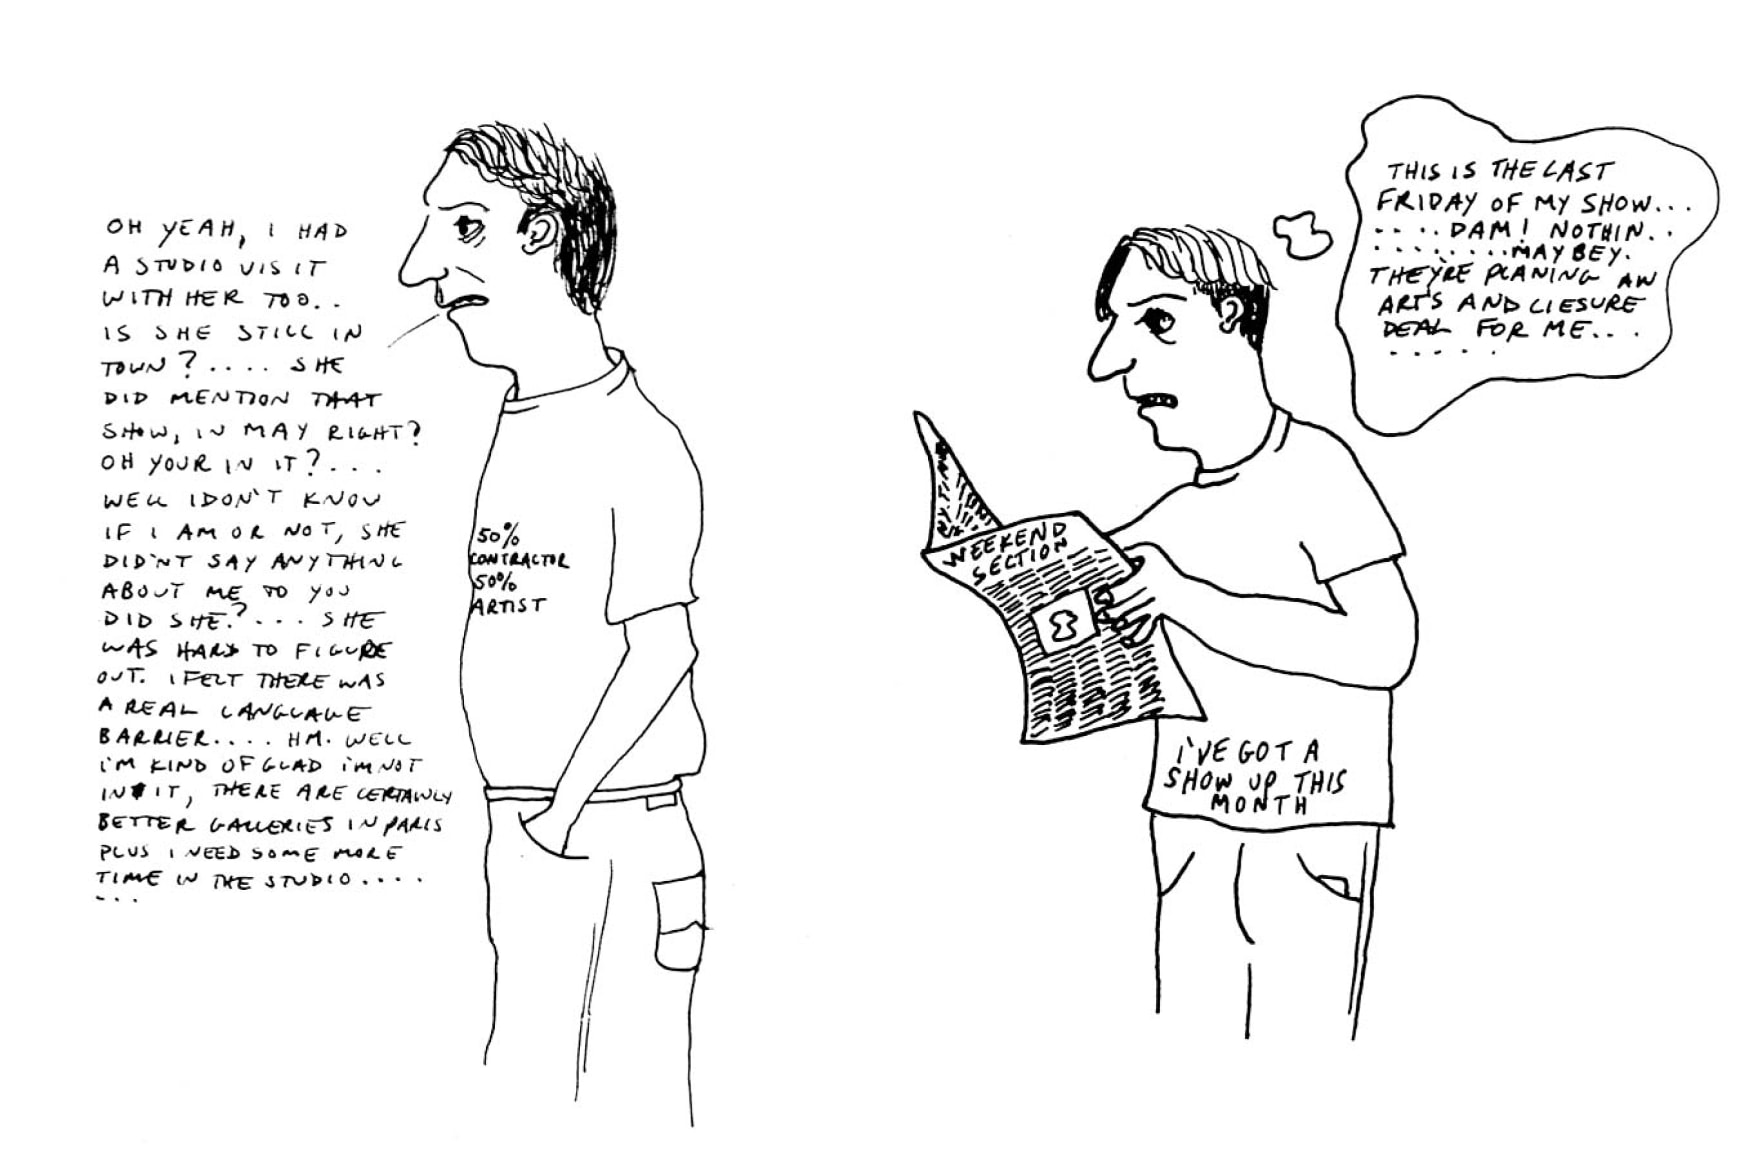 OH YEAH, I HAD
A STUDIO VISIT
WITH HER TOO..
IS SHE STILL IN
TOWN?.... SHE
DID MENTION THAT
SHOW, IN MAY RIGHT?
OH YOUR IN IT?...
WELL I DON'T KNOW
IF I AM OR NOT, SHE
DID'NT SAY ANYTHING
ABOUT ME TO YOU
DID SHE?... SHE
WAS HARD TO FIGURE
OUT. I FELT THERE WAS
A REAL LANGUAGE
BARRIER.... HM. WELL
I'M KIND OF GLAD I'M NOT
IN IT, THERE ARE CERTAINLY
BETTER GALLERIES IN PARIS
PLUS I NEED SOME MORE
TIME IN THE STUDIO....
...
50%
CONTRACTOR
50%
ARTIST
THIS IS THE LAST
FRIDAY OF MY SHOW...
....DAM! NOTHIN..
........MAYBEY.
THEY'RE PLANING AN
ART'S AND LIESURE
DEAL FOR ME...
......
WEEKEND
SECTION
I'VE GOT A
SHOW UP THIS
MONTH